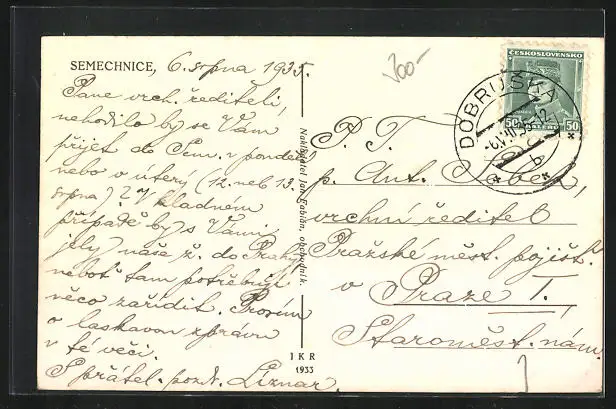 SEMECHNICE, 6. srpna 1935.
Pane vrch. řediteli,
nehodilo by se Vám
přijet do Sem. v pondělí
nebo v úterý (12. neb 13.
srpna)? V kladném
případě by s Vámi
jely naše ž. do Prahy,
neboť tam potřebují
něco zařídit. Prosím
o laskavou zprávu
v té věci.
S přátel. pozdr. Líznar.
Nakladatel Jan Fabián, obchodník.
IKR
1933
v300-
ČESKOSLOVENSKO
50 HALÉŘŮ 50
DOBRUŠKA
P. T.
p. Ant.
vrchní ředitel
Pražské měst. pojišť.
v Praze I.
Staroměst. nám.